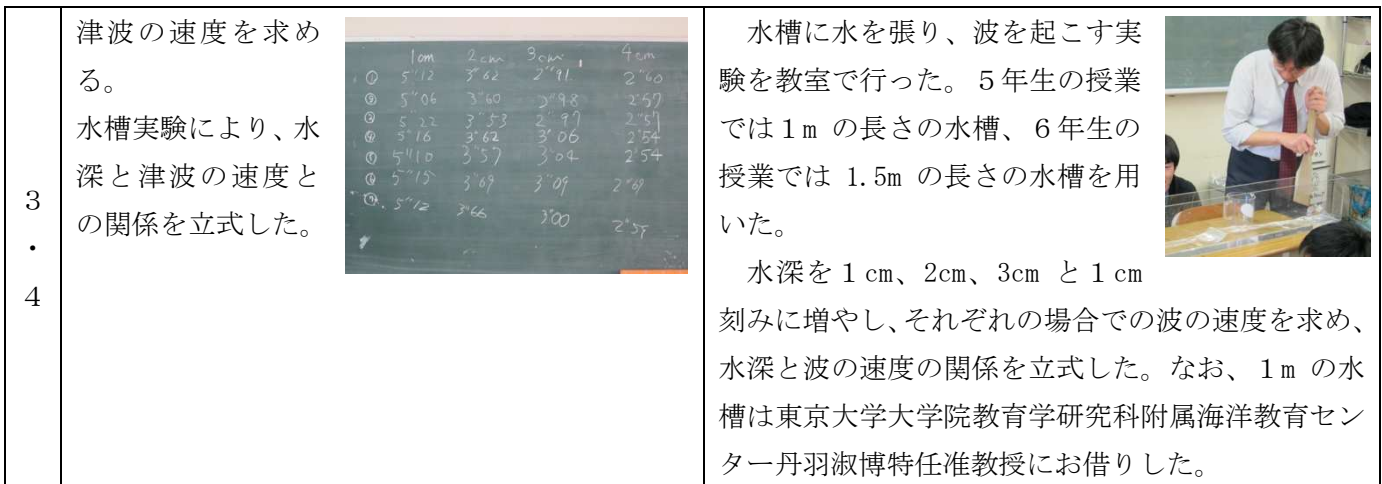 3
・
4
津波の速度を求め
る。
水槽実験により、水
深と津波の速度と
の関係を立式した。
1cm 2cm 3cm 4cm
① 5"12 3"62 2"91 2"60
② 5"06 3"60 2"98 2"57
③ 5"22 3"53 2"97 2"57
④ 5"16 3"62 3"06 2"54
⑤ 5"10 3"57 3"04 2"54
⑥ 5"15 3"69 3"09 2"69
5"12 3"66 3"00
水槽に水を張り、波を起こす実
験を教室で行った。５年生の授業
では１m の長さの水槽、６年生の
授業では 1.5m の長さの水槽を用
いた。
水深を１cm、2cm、3cm と１cm
刻みに増やし、それぞれの場合での波の速度を求め、
水深と波の速度の関係を立式した。なお、１m の水
槽は東京大学大学院教育学研究科附属海洋教育セン
ター丹羽淑博特任准教授にお借りした。